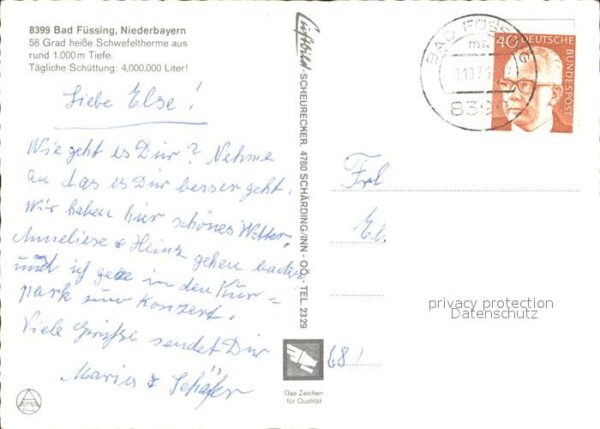 8399 Bad Füssing, Niederbayern
58 Grad heiße Schwefeltherme aus
rund 1.000 m Tiefe.
Tägliche Schüttung: 4,000.000 Liter!
Liebe Else!
Wie geht es Dir? Nehme
an das es Dir besser geht.
Wir haben hier schönes Wetter.
Anneliese & Heinz gehen baden
und ich gehe in den Kur=
park zum Konzert.
Viele Grüße sendet Dir
Maria & Schäfer
Luftbild-SCHEURECKER, 4780 SCHÄRDING/INN - OÖ. - TEL. 2329
Das Zeichen
für Qualität
BAD FÜSSING
8399
40
DEUTSCHE
BUNDESPOST
Frl
El.
68!
privacy protection
Datenschutz